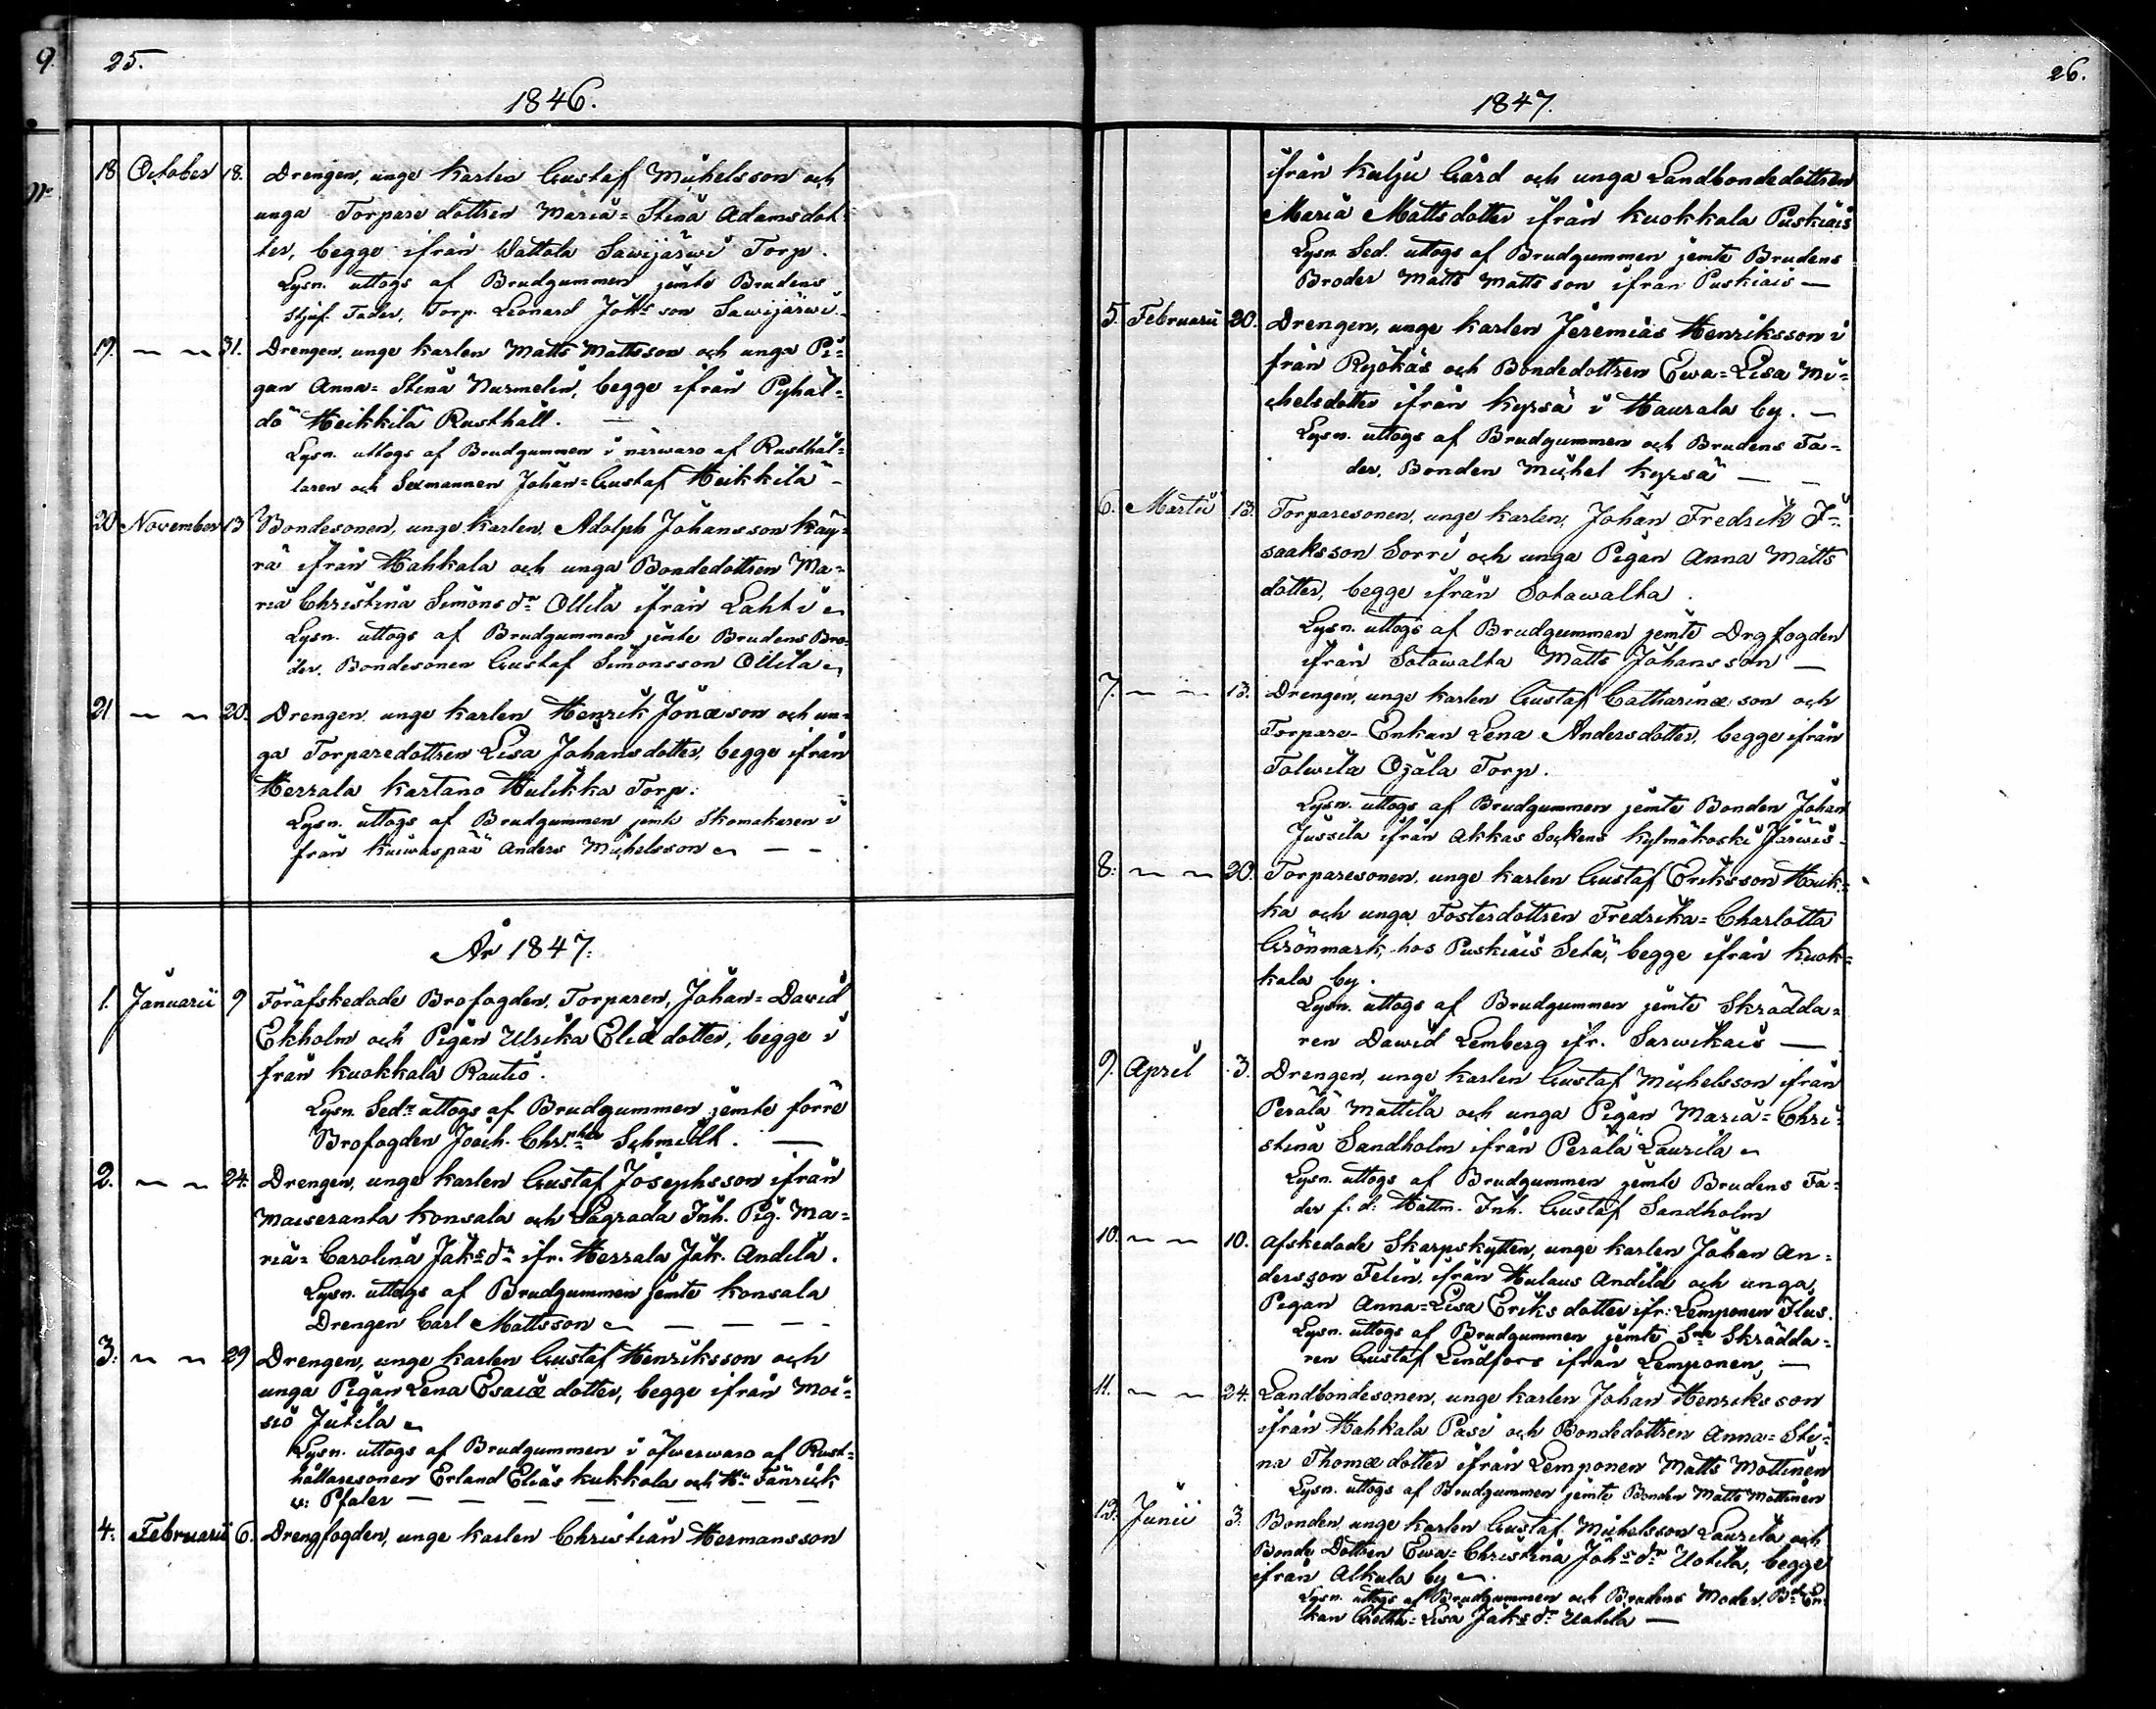 9.
25.
1846.
18 October 18. Drengen, unge karlen Gustaf Michelsson och
unga Torparedottren Maria=Stina Adamsdot=
ter, begge ifrån Wattola Sawijärwi Torp.
Lysn. uttogs af Brudgummen jemte Brudens
Stjuf. Fader, Torp. Leonard Joh:s son Sawijärwi –
19. — — 31. Drengen, unge karlen Matts Mattsson och unga Pi=
gan Anna=Stina Nurmelin, begge ifrån Pyhäl=
dö Heikkilä Rusthåll. —
Lysn. uttogs af Brudgummen i närwaro af Rusthål=
laren och Sexmannen Johan=Gustaf Heikkilä –
20 November 13 Bondesonen, unge karlen, Adolph Johansson Käy=
rä ifrån Hahkala och unga Bondedottren Ma=
ria Christina Simons d:r Ollila ifrån Lahti
Lysn. uttogs af Brudgummen jemte Brudens Bro=
der, Bondesonen Gustaf Simonsson Ollila
21 — — 20. Drengen unge karlen Henrik Jonæson och un=
ga Torparedottren Lisa Johansdotter, begge ifrån
Herrala Kartano Hulikka Torp.
Lysn. uttogs af Brudgummen jemte Skomakaren i
från Kuiwaspää Anders Michelsson — —
År 1847.
1. Januarii 9 Föräfskedade Brofogden, Torparen, Johan=Dawid
Ekholm och Pigan Ulrika Eliædotter, begge i
från Kuokkala Rautio.
Lysn. Sed:n uttogs af Brudgummen jemte förre
Brofogden Joach. Chr. Schmidt. —
2. — — 24. Drengen, unge karlen Gustaf Josephsson ifrån
Maiseranta Konsala och Lägrada Inh. Pig. Ma=
ria=Carolina Jak:s d:r ifr. Herrala Jak. Andila.
Lysn. uttogs af Brudgummen jemte Konsala
Drengen Carl Mattsson — — — —
3. — — 29 Drengen, unge karlen Gustaf Henriksson och
unga Pigan Lena Esaiædotter, begge ifrån Moi=
sio Jutila
Lysn. uttogs af Brudgummen i öfwerwaro af Rust=
hållaresonen Erland Elias Kukkola och H:r Fänrick
v: Pfaler — — — — — — —
4. Februarii 6. Drengfogden, unge karlen Christian Hermansson
26.
1847.
ifrån Kulju Gård och unga Landbondedottren
Maria Mattsdotter ifrån Kuokkala Puskiais
Lysn. Sed. uttogs af Brudgummen jemte Brudens
Broder Matts Mattsson ifrån Puskiais —
5. Februarii 20. Drengen, unge karlen Jeremias Henriksson i
från Ryökäs och Bondedottren Ewa=Lisa Mi=
chelsdotter ifrån Kyrsä i Haurala by. —
Lysn. uttogs af Brudgummen och Brudens Fa=
der, Bonden Michel Kyrsä — —
6. Martii 13. Torparesonen, unge karlen, Johan Fredrik I=
saaksson Sorri och unga Pigan Anna Matts
dotter, begge ifrån Sotawalta.
Lysn. uttogs af Brudgummen jemte Drgfogden
ifrån Sotawalta Matts Johansson —
7. — — 13. Drengen, unge karlen Gustaf Catharinæson och
Torpare-Enkan Lena Andersdotter, begge ifrån
Talwila Ojala Torp.
Lysn. uttogs af Brudgummen jemte Bonden Johan
Jussila ifrån Akkas Sockens Kylmäkoski Järwis.
8. — — 20. Torparesonen, unge karlen Gustaf Eriksson Huik=
ka och unga Fosterdottren Fredrika=Charlotta
Grönmark, hos Puskiais Setä, begge ifrån Kuok=
kala by.
Lysn. uttogs af Brudgummen jemte Skrädda=
ren Dawid Lemberg ifr. Sarwikais —
9. April 3. Drengen, unge karlen Gustaf Michelsson ifrån
Perälä Mattila och unga Pigan Maria=Chri=
stina Sandholm ifrån Perälä Laurila
Lysn. uttogs af Brudgummen jemte Brudens Fa=
der f. d. Hattm. Inh. Gustaf Sandholm
10. — — 10. Afskedade Skarpskytten, unge karlen Johan An=
dersson Felin, ifrån Hulaus Andila och unga
Pigan Anna=Lisa Eriksdotter ifr. Lemponen Ilus.
Lysn. uttogs af Brudgummen jemte S:ne Skrädda=
ren Gustaf Lindfors ifrån Lemponen, —
11. — — 24. Landbondesonen, unge karlen Johan Henriksson
ifrån Hahkala Pasi och Bondedottren Anna=Sti=
na Thomædotter ifrån Lemponen Matts Mottinen
Lysn. uttogs af Brudgummen jemte Bonden Matts Mottinen
12. Junii 3. Bonden unge karlen Gustaf Michelsson Laurila och
Bonde Dottren Ewa=Christina Joh:s d:r Uotila, begge
ifrån Alkula by
Lysn. uttogs af Brudgummen och Brudens Moder, B:d En=
kan Gretha=Lisa Jak:s d:r Uotila —